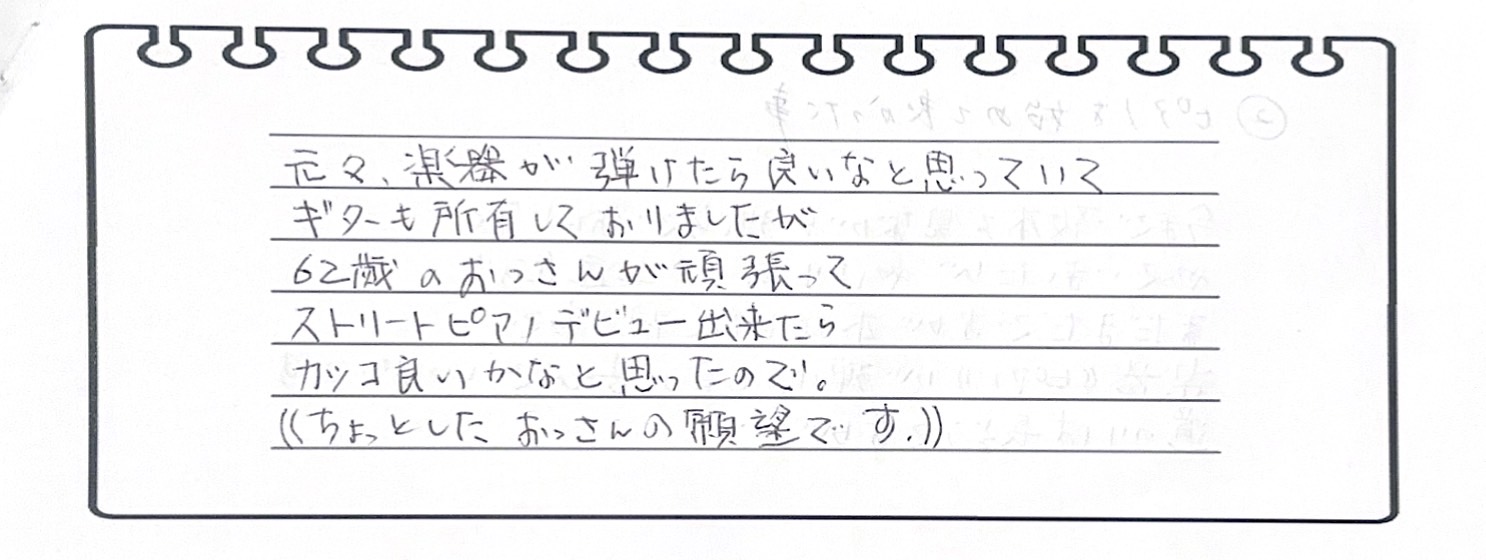 元々、楽器が弾けたら良いなと思っていて
ギターも所有しておりましたが
62歳のおっさんが頑張って
ストリートピアノデビュー出来たら
カッコ良いかなと思ったので。
((ちょっとしたおっさんの願望です.))